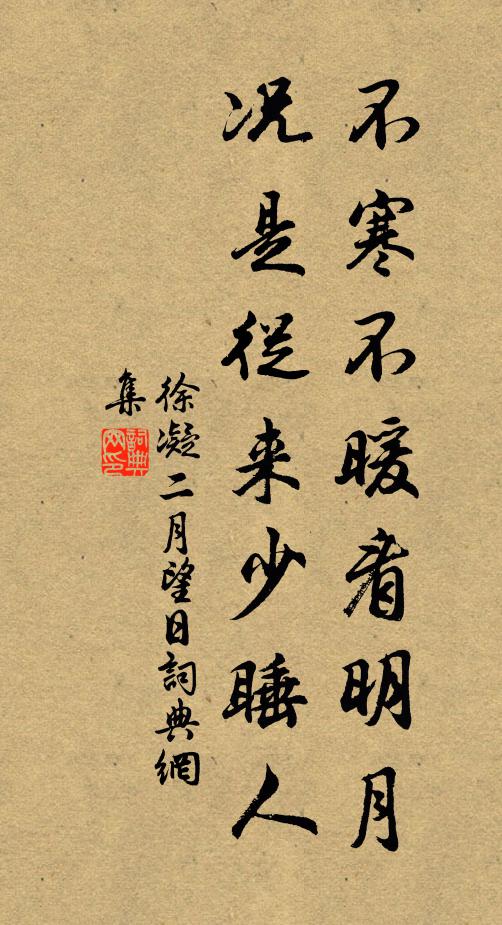 不寒不暖看明月
况是從来少睡人
徐凝二月望日詞典網
集
詞典網印